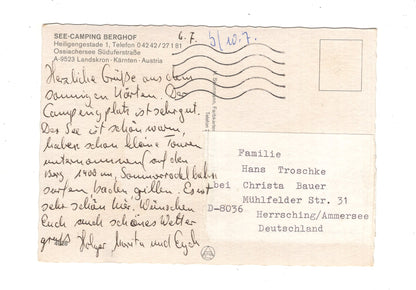 SEE-CAMPING BERGHOF
Heiligengestade 1, Telefon 04242/27181
Ossiachersee Süduferstraße
A-9523 Landskron · Kärnten · Austria
6.7.
5/10.7.
Herzliche Grüße aus dem
sonnigen Kärnten. Der
Campingplatz ist sehr gut.
Der See ist schön warm,
haben schon kleine Touren
unternommen auf den
1400m, Sommerrodelbahn
surfen baden grillen. Es ist
sehr schön hier. Wünschen
Euch auch schönes Wetter
Holger und
Familie
Hans Troschke
bei Christa Bauer
Mühlfelder Str. 31
D-8036
Herrsching/Ammersee
Deutschland